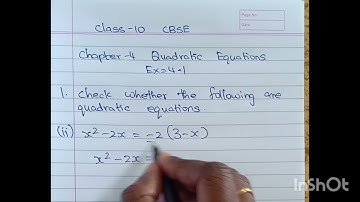 Class-10 CBSE
Chapter-4 Quadratic Equations
Ex=4.1
1. Check whether the following are
quadratic equations.
(ii) x² - 2x = -2 (3-x)
x² - 2x =
InShOt